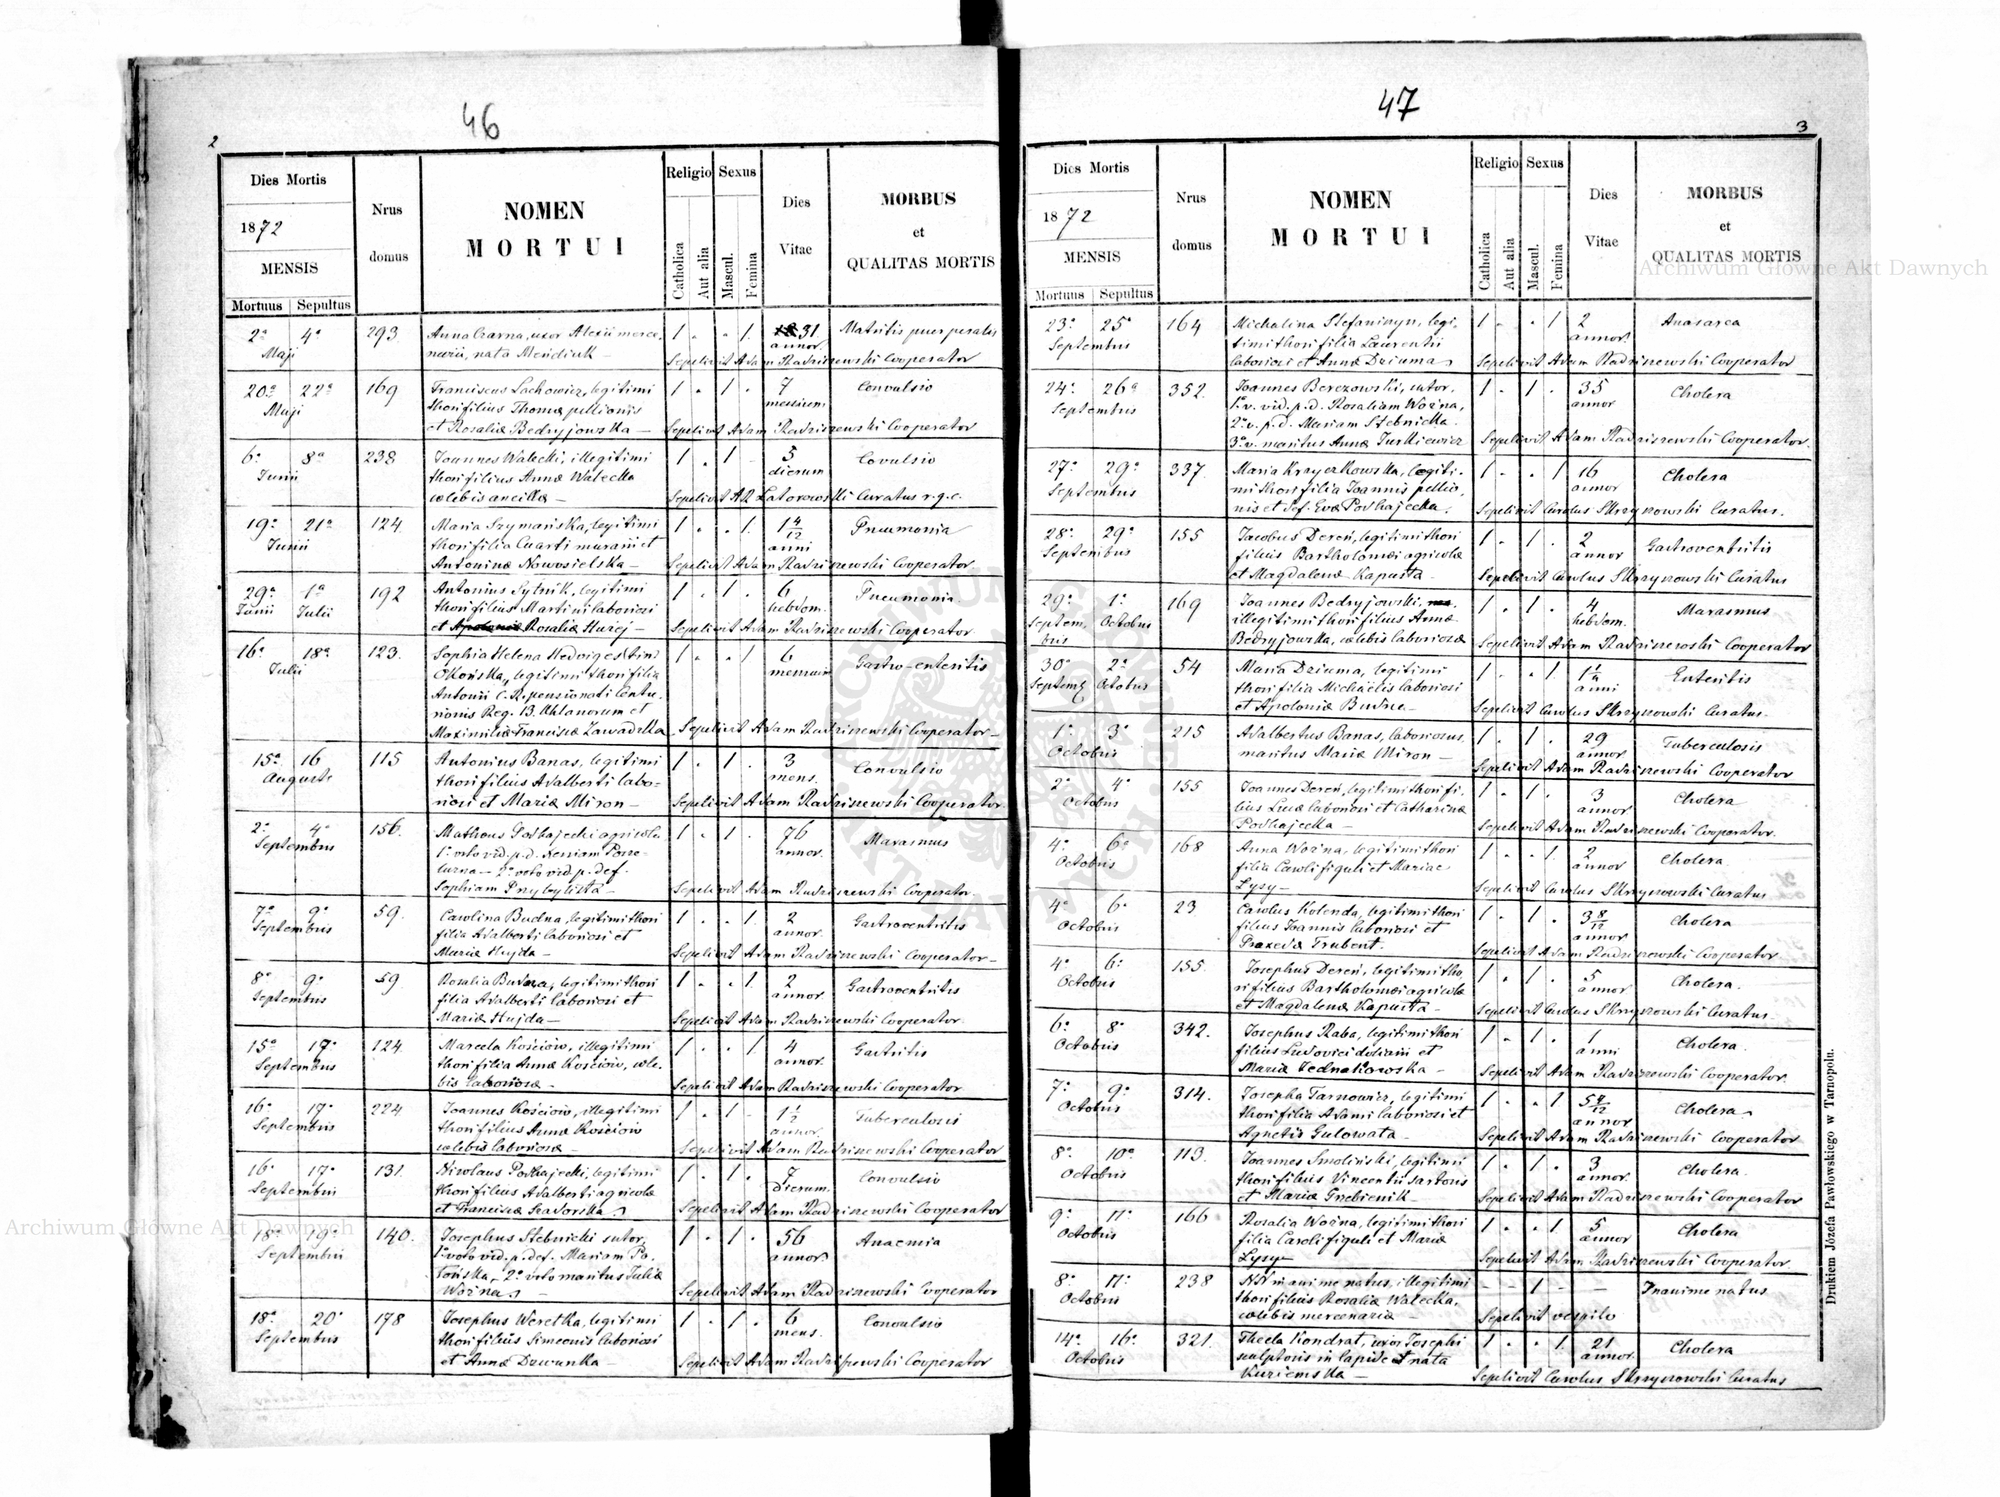 46
2
Dies Mortis
1872
MENSIS
Mortuus Sepultus
Nrus
domus
NOMEN
MORTUI
Religio
Catholica
Aut alia
Sexus
Mascul.
Femina
Dies
Vitae
MORBUS
et
QUALITAS MORTIS
2ª 4ª 293 Anna Czarna, uxor Alexii merce- 1 - - 1. 31 Metritis puerperalis
Maji narii, nata Mendiuk — annor.
Sepelivit Adam Radziszewski Cooperator
20ª 22ª 169 Franciscus Lachowicz, legitimi 1 - 1 - 7 Convulsio
Maji thori filius Thomæ pellionis mensium
et Rosaliæ Bedryjowska — Sepelivit Adam Radziszewski Cooperator
6ª 8ª 238 Joannes Watecki, illegitimi 1 - 1 - 5 Covulsio
Junii thori filius Annæ Watecka dierum
cælibis ancillæ — Sepelivit Curatus r.g.c.
19ª 21ª 124 Maria Szymańska, legitimi 1 - - 1. 1 4/12 Pneumonia
Junii thori filia murarii et anni
Antoninæ Nowosielska — Sepelivit Adam Radziszewski Cooperator
29ª 1ª 192 Antonius Sytnik, legitimi 1 - 1 - 6 Pneumonia.
Junii Julii thori filius Martini laboriosi hebdom.
et Rosaliæ Huzej — Sepelivit Adam Radziszewski Cooperator
16ª 18ª 123. Sophia Helena Hedvigis 1 - - 1 6 Gastro-enteritis
Julii Okońska, legitimi thori filia mensium
Antonii C. R. pensionati Centu-
rionis Reg. 13. Uhlanorum et
Maximiliæ Franciscæ Zawadzka Sepelivit Adam Radziszewski Cooperator —
15ª 16 115 Antonius Banas, legitimi 1 - 1 - 3 Convulsio
Augusti thori filius Adalberti labo- mens.
riosi et Mariæ Miron — Sepelivit Adam Radziszewski Cooperator
2ª 4ª 156. Matheus Podhajecki agricola 1 - 1 - 76 Marasmus
Septembris 1º voto vid. p. d. annor.
2º voto vid. p. def.
Sophiam Przybylska — Sepelivit Adam Radziszewski Cooperator
7ª 9ª 59. Carolina Budna, legitimi thori 1 - - 1 2 Gastroentritis
Septembris filia Adalberti laboriosi et annor.
Mariæ Hujda — Sepelivit Adam Radziszewski Cooperator —
8ª 9ª 59 Rosalia Budna, legitimi thori 1 - - 1. 2 Gastroentritis
Septembris filia Adalberti laboriosi et annor.
Mariæ Hujda — Sepelivit Adam Radziszewski Cooperator
15ª 17ª 124. Marcela Kościów, illegitimi 1 - - 1 4 Gastritis
Septembris thori filia Annæ Kościów, cæle- annor.
bis laboriosæ — Sepelivit Adam Radziszewski Cooperator
16ª 17ª 224 Joannes Kościów, illegitimi 1 - 1 - 1 1/2 Tuberculosis
Septembris thori filius Annæ Kościów annor.
cælibis laboriosæ — Sepelivit Adam Radziszewski Cooperator
16ª 17ª 131. Nicolaus Podhajecki, legitimi 1 - 1 - 7 Convulsio
Septembris thori filius Adalberti agricolæ dierum.
et Franciscæ Sepelivit Adam Radziszewski Cooperator
18ª 19ª 140. Josephus Stebnicki sutor, 1 - 1 - 56 Anaemia
Septembris 1º voto vid. p. def. Mariam Po- annor.
tońska, 2º voto maritus Juliæ
Woźna. Sepelivit Adam Radziszewski Cooperator
18ª 20ª 178 Josephus Weretka, legitimi 1 - 1 - 6 Convulsio
Septembris thori filius Simeonis laboriosi mens.
et Annæ Dzwonka — Sepelivit Adam Radziszewski Cooperator
47
3
Dies Mortis
1872
MENSIS
Mortuus Sepultus
Nrus
domus
NOMEN
MORTUI
Religio
Catholica
Aut alia
Sexus
Mascul.
Femina
Dies
Vitae
MORBUS
et
QUALITAS MORTIS
23ª 25ª 164 Michalina Stefaniszyn, legi- 1 - - 1 2 Anasarca
Septembris timi thori filia Laurentii annor.
laboriosi et Annæ Dziuma Sepelivit Adam Radziszewski Cooperator
24ª 26ª 352. Joannes Berezowski, sutor, 1 - 1 - 35 Cholera
Septembris 1º v. vid. p. d. Rosaliam Woźna, annor
2º v. p. d. Mariam Stebnicka.
3º v. maritus Annæ Jurkiewicz Sepelivit Adam Radziszewski Cooperator
27ª 29ª 337. Maria Krzyczkowska, legiti- 1 - - 1 16 Cholera
Septembris mi thori filia Joannis pellio- annor
nis et def. Evæ Podhajecka. Sepelivit Carolus Skrzyszowski Curatus.
28ª 29ª 155 Jacobus Dereń, legitimi thori 1 - 1 - 2 Gastroentritis
Septembris filius Bartholomæi agricolæ annor
et Magdalenæ Kapusta — Sepelivit Carolus Skrzyszowski Curatus
29ª 1ª 169 Joannes Bedryjowski, 1 - 1 - 4 Marasmus
Septem- Octobris illegitimi thori filius Annæ hebdom.
bris Bedryjowska, cælibis laboriosæ Sepelivit Adam Radziszewski Cooperator
30ª 2ª 54 Maria Dziuma, legitimi 1 - - 1 1 1/4 Enteritis
Septemb Octobris thori filia Michaelis laboriosi anni
et Apoloniæ Budna — Sepelivit Carolus Skrzyszowski Curatus.
1ª 3ª 215 Adalbertus Banas, laboriosus 1 - 1 - 29 Tuberculosis
Octobris maritus Mariæ Miron — annor.
Sepelivit Adam Radziszewski Cooperator
2ª 4ª 155 Joannes Dereń, legitimi thori fi- 1 - 1 - 3 Cholera
Octobris lius Lucæ laboriosi et Catharinæ annor
Podhajecka — Sepelivit Adam Radziszewski Cooperator.
4ª 6ª 168 Anna Woźna, legitimi thori 1 - - 1. 2 Cholera
Octobris filia Caroli figuli et Mariae annor
Lysy — Sepelivit Carolus Skrzyszowski Curatus.
4ª 6ª 23 Carolus Kolenda, legitimi thori 1 - 1 - 3 8/12 Cholera
Octobris filius Joannis laboriosi et annor
Praxedæ Trubent. Sepelivit Adam Radziszewski Cooperator.
4ª 6ª 155. Josephus Dereń, legitimi tho- 1 - 1 - 5 Cholera.
Octobris ri filius Bartholomæi agricolæ annor
et Magdalenæ Kapusta — Sepelivit Carolus Skrzyszowski Curatus.
6ª 8ª 342. Josephus Raba, legitimi thori 1 - 1 - 1 Cholera.
Octobris filius Ludovici doliarii et anni
Mariæ Sepelivit Adam Radziszewski Cooperator.
7ª 9ª 314. Josepha Tarnowicz, legitimi 1 - - 1 5 4/12 Cholera
Octobris thori filia Adami laboriosi et annor
Agnetis Gulowata — Sepelivit Adam Radziszewski Cooperator
8ª 10ª 113. Joannes Smoliński, legitimi 1 - 1 - 3 Cholera
Octobris thori filius Vincentii sartoris annor.
et Mariæ Grzebienik — Sepelivit Adam Radziszewski Cooperator
9ª 11ª 166 Rosalia Woźna, legitimi thori 1 - - 1 5 Cholera
Octobris filia Caroli figuli et Mariæ annor
Lysy — Sepelivit Adam Radziszewski Cooperator.
8ª 11ª 238 NN inanime natus, illegitimi — 1 — — Inanime natus
Octobris thori filius Rosaliæ Watecka,
cælibis mercenariæ — Sepelivit vespilo
14ª 16ª 321. Thecla Kondrat, uxor Josephi 1 - - 1. 21 Cholera
Octobris sculptoris in lapide et nata annor.
Kuziemska — Sepelivit Carolus Skrzyszowski Curatus
Drukiem Józefa Pawłowskiego w Tarnopolu.
Archiwum Główne Akt Dawnych
Archiwum Główne Akt Dawnych
ARCHIWUM GŁÓWNE AKT DAWNYCH